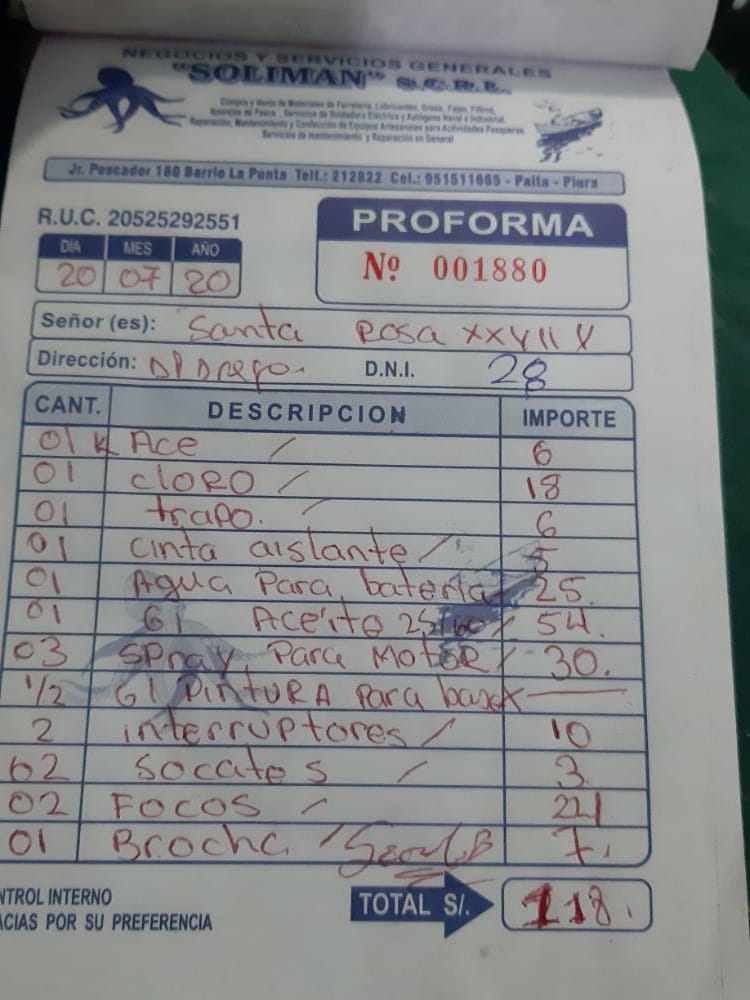 NEGOCIOS Y SERVICIOS GENERALES
"SOLIMAN" S.C.R.L.
Compra y Venta de Materiales de Ferretería, Lubricantes, Grasa, Fajas, Filtros,
Aparejos de Pesca, Servicios de Soldadura Electrica y Autógena Naval e Industrial
Reparación, Mantenimiento y Confección de Equipos Artesanales para Actividades Pesqueras
Servicios de mantenimiento y Reparación en General
Jr. Pescador 180 Barrio La Punta Telf.: 212822 Cel.: 951511665 - Paita - Piura
R.U.C. 20525292551
PROFORMA
DIA MES AÑO
Nº 001880
20 07 20
Señor (es): Santa Rosa XXVII V
Dirección: D.N.I. 28
CANT. DESCRIPCION IMPORTE
01 K Ace / 6
01 cloro / 18
01 trapo. / 6
01 cinta aislante / 5
01 Agua Para bateria 25.
01 Gl Aceito 25/60 / 54.
03 Spray Para Motor / 30.
1/2 Gl Pintura Para base X
2 interruptores / 10
02 Socates / 3.
02 Focos /
01 Brocha / 7.
NTROL INTERNO
ACIAS POR SU PREFERENCIA
TOTAL S/. 118.